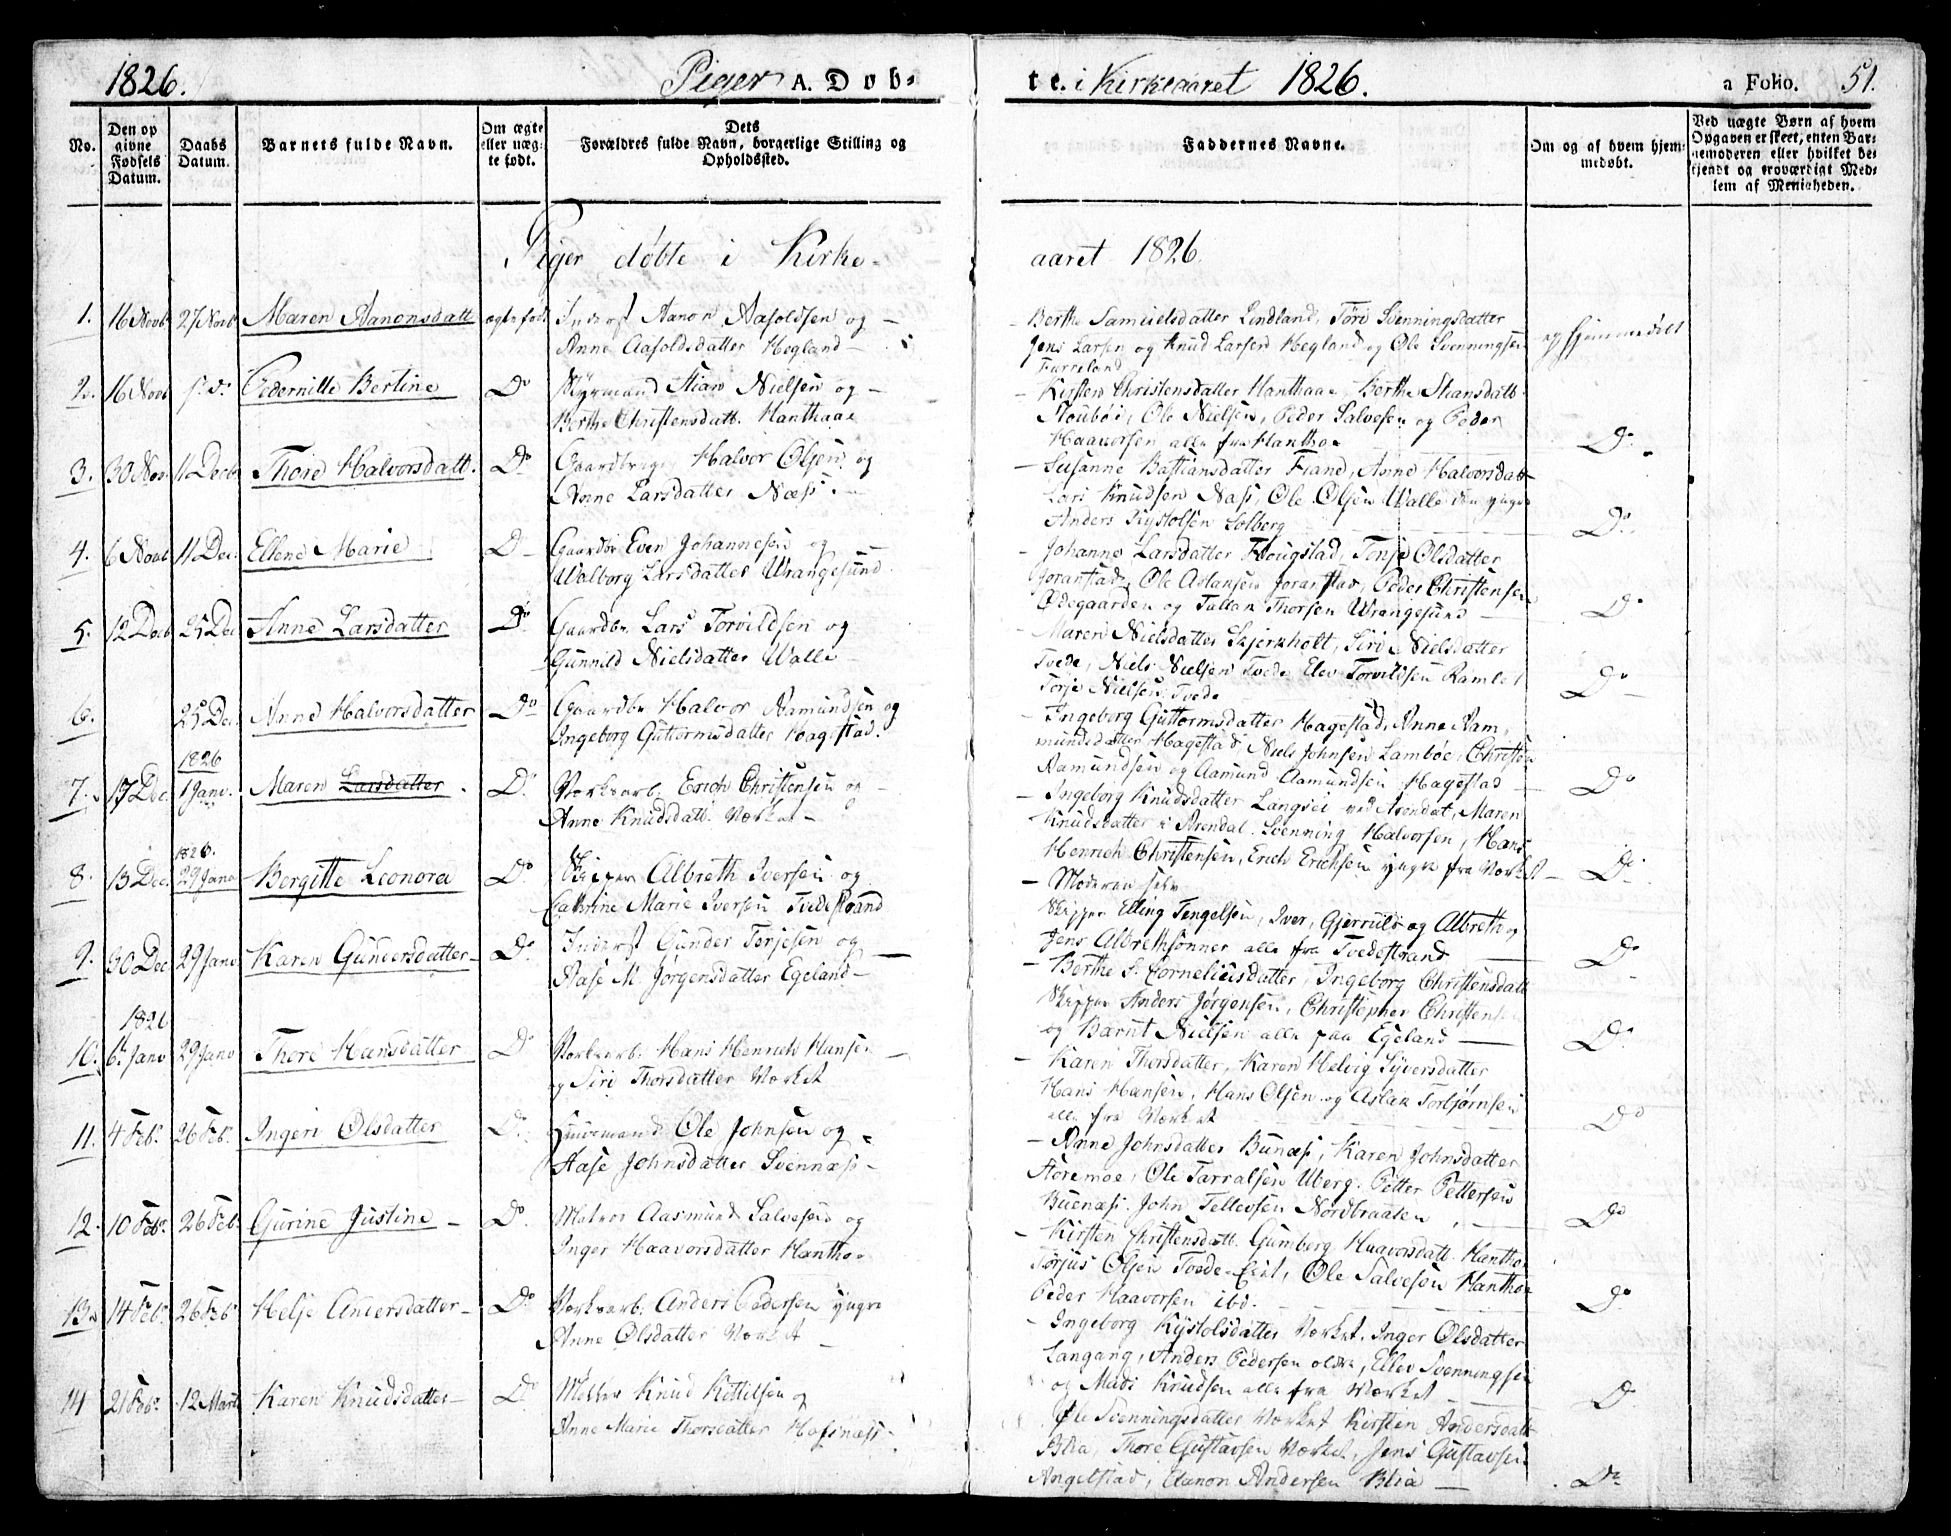 1826.
Piger A. Døb-
te. i Kirkeaaret 1826.
a Folio. 51.
No.
Den op
givne
Fødsels
Datum.
Daabs
Datum.
Barnets fulde Navn.
Om ægte
eller uæg-
te født.
Dets
Forældres fulde Navn, borgerlige Stilling og
Opholdssted.
Faddernes Navne.
Om og af hvem hjem-
medøbt.
Ved uægte Børn af hvem
Opgaven er skeet, enten Bar-
nemoderen eller hvilket be-
kjendt og troværdigt Med-
lem af Menigheden.
Piger døbte i Kirke-
aaret 1826.
1. 16 Novb 27 Novb Maren Aanonsdatt ægte født Inderst Aanon Aasoldsen og
Anne Aasoldsdatter Hegland
Berthe Samuelsdatter Lindland, Tøre Svenningsdatter
Jens Larsen og Knud Larsen Hegland og Ole Svenningsen
Furreland
ej hjemmedøbt
2. 16 Novb Pedernille Bertine Do Styrmand Stian Nielsen og
Berthe Christensdatt. Hanthaae
Kirsten Christensdatter Hanthaae Berthe Stiansdatt.
Ole Nielsen, Peder Salvesen og Peder
Haavorsen alle fra Hanthoe
Do
3. 30 Nov. 11 Decb Thore Halvorsdatt. Do Gaardbruger Halvor Olsen og
Anne Larsdatter Næss.
Susanne Bastiansdatter Fiane, Anne Halvorsdatt
Lars Knudsen Næss, Ole Olsen Walle den yngre
Anders Kystolsen Solberg
Do
4. 6 Novb 11 Dec. Ellene Marie Do Gaardbr Even Johannesen og
Walborg Larsdatter Wrangesund.
Johanne Larsdatter Hougstad, Tonje Olsdatter
Joranstad, Ole Aslansen Joranstad, Peder Christensen
Ødegaarden og Tallak Thorsen Wrangesund
Do
5. 12 Decb 25 Dec Anne Larsdatter Do Gaardbr. Lars Torvildsen og
Gunnild Nielsdatter Walle
Maren Nielsdatter Skjerkholt, Siri Nielsdatter
Tvede, Niels Nielsen Tvede Elev Torvildsen Ramlet
Torje Nielsen Tvede
Do
6. 25 Dec. Anne Halvorsdatter Do Gaardbr Halvor Aamundsen og
Ingeborg Guttormsdatter Hagestad.
Ingeborg Guttormsdatter Hagestad, Anne Aam-
mundsdatter Hagestad Niels Johnsen Lambøe, Christen
Aamundsen og Aamund Aamundsen Hagestad
Do
1826
7. 17 Dec. 1 Janv. Maren Larsdatter. Do Værksarb. Erich Christensen og
Anne Knudsdatt. Værket
Ingeborg Knudsdatter Langsei ved Arendal, Maren
Knudsdatter i Arendal. Svenning Halvorsen, Hans
Henrich Christensen, Erich Erichsen yngre fra Værket
Do
1826.
8. 13 Dec. 29 Janv Bergitte Leonora Do Skipper Albreth Iversen og
Cathrine Marie Iversen Tvedestrand
Moderen selv
Skipper Elling Tengelsen, Iver, Gjerrulf og Albreth og
Jens Albrethsønner alle fra Tvedestrand
Do
9. 30 Dec 29 Janv Karen Gundersdatter Do Inderst Gunder Torjesen og
Aase M. Jørgensdatter Egeland
Berthe S. Corneliusdatter, Ingeborg Christensdatt
Skipper Anders Jørgensen, Christopher Christensen
og Barnt Nielsen alle paa Egeland
Do
1826
10. 6 Janv 29 Janv Thore Hansdatter Do Værksarb. Hans Henrich Hansen
og Siri Thorsdatter Værket
Karen Thorsdatter, Karen Helvig Syversdatter
Hans Hansen, Hans Olsen og Aslak Torbjørnsen
alle fra Værket
Do
11. 4 Feb. 26 Feb. Ingeri Olsdatter Do Huusmand Ole Johnsen og
Aase Johnsdatter Svennæss
Anne Johnsdatter Bunæss, Karen Johnsdatter
Støremoe, Ole Tarralsen Uberg. Petter Pettersen
Buenæss. John Tellevsen Nordbraaten
Do
12. 10 Feb. 26 Feb. Gurine Justine Do Matros Aasmund Salvesen og
Inger Haavorsdatter Hanthoe
Kirsten Christensdatt. Gumberg Haavorsdatt. Hanthoe
Tørjus Olsen Tvede-Eiet, Ole Salvesen Hanthoe
Peder Haavorsen ibd.
Do
13. 14 Feb. 26 Feb. Helje Andersdatter Do Værksarb. Anders Pedersen yngre
Anne Olsdatter Værket
Ingeborg Kystolsdatter Værket, Inger Olsdatter
Langang, Anders Pedersen ældre, Ellev Svenningsen
og Mads Knudsen alle fra Værket
Do
14 21 Feb. 12 Marts Karen Knudsdatter Do Knud Kittilsen og
Anne Marie Thorsdatter
Svenningsdatter Værket Kirsten Andersdatt
Blia, Thore Gustavsen Værket, Jens Gustavsen
Angelstad, Aanon Andersen Blia
Do